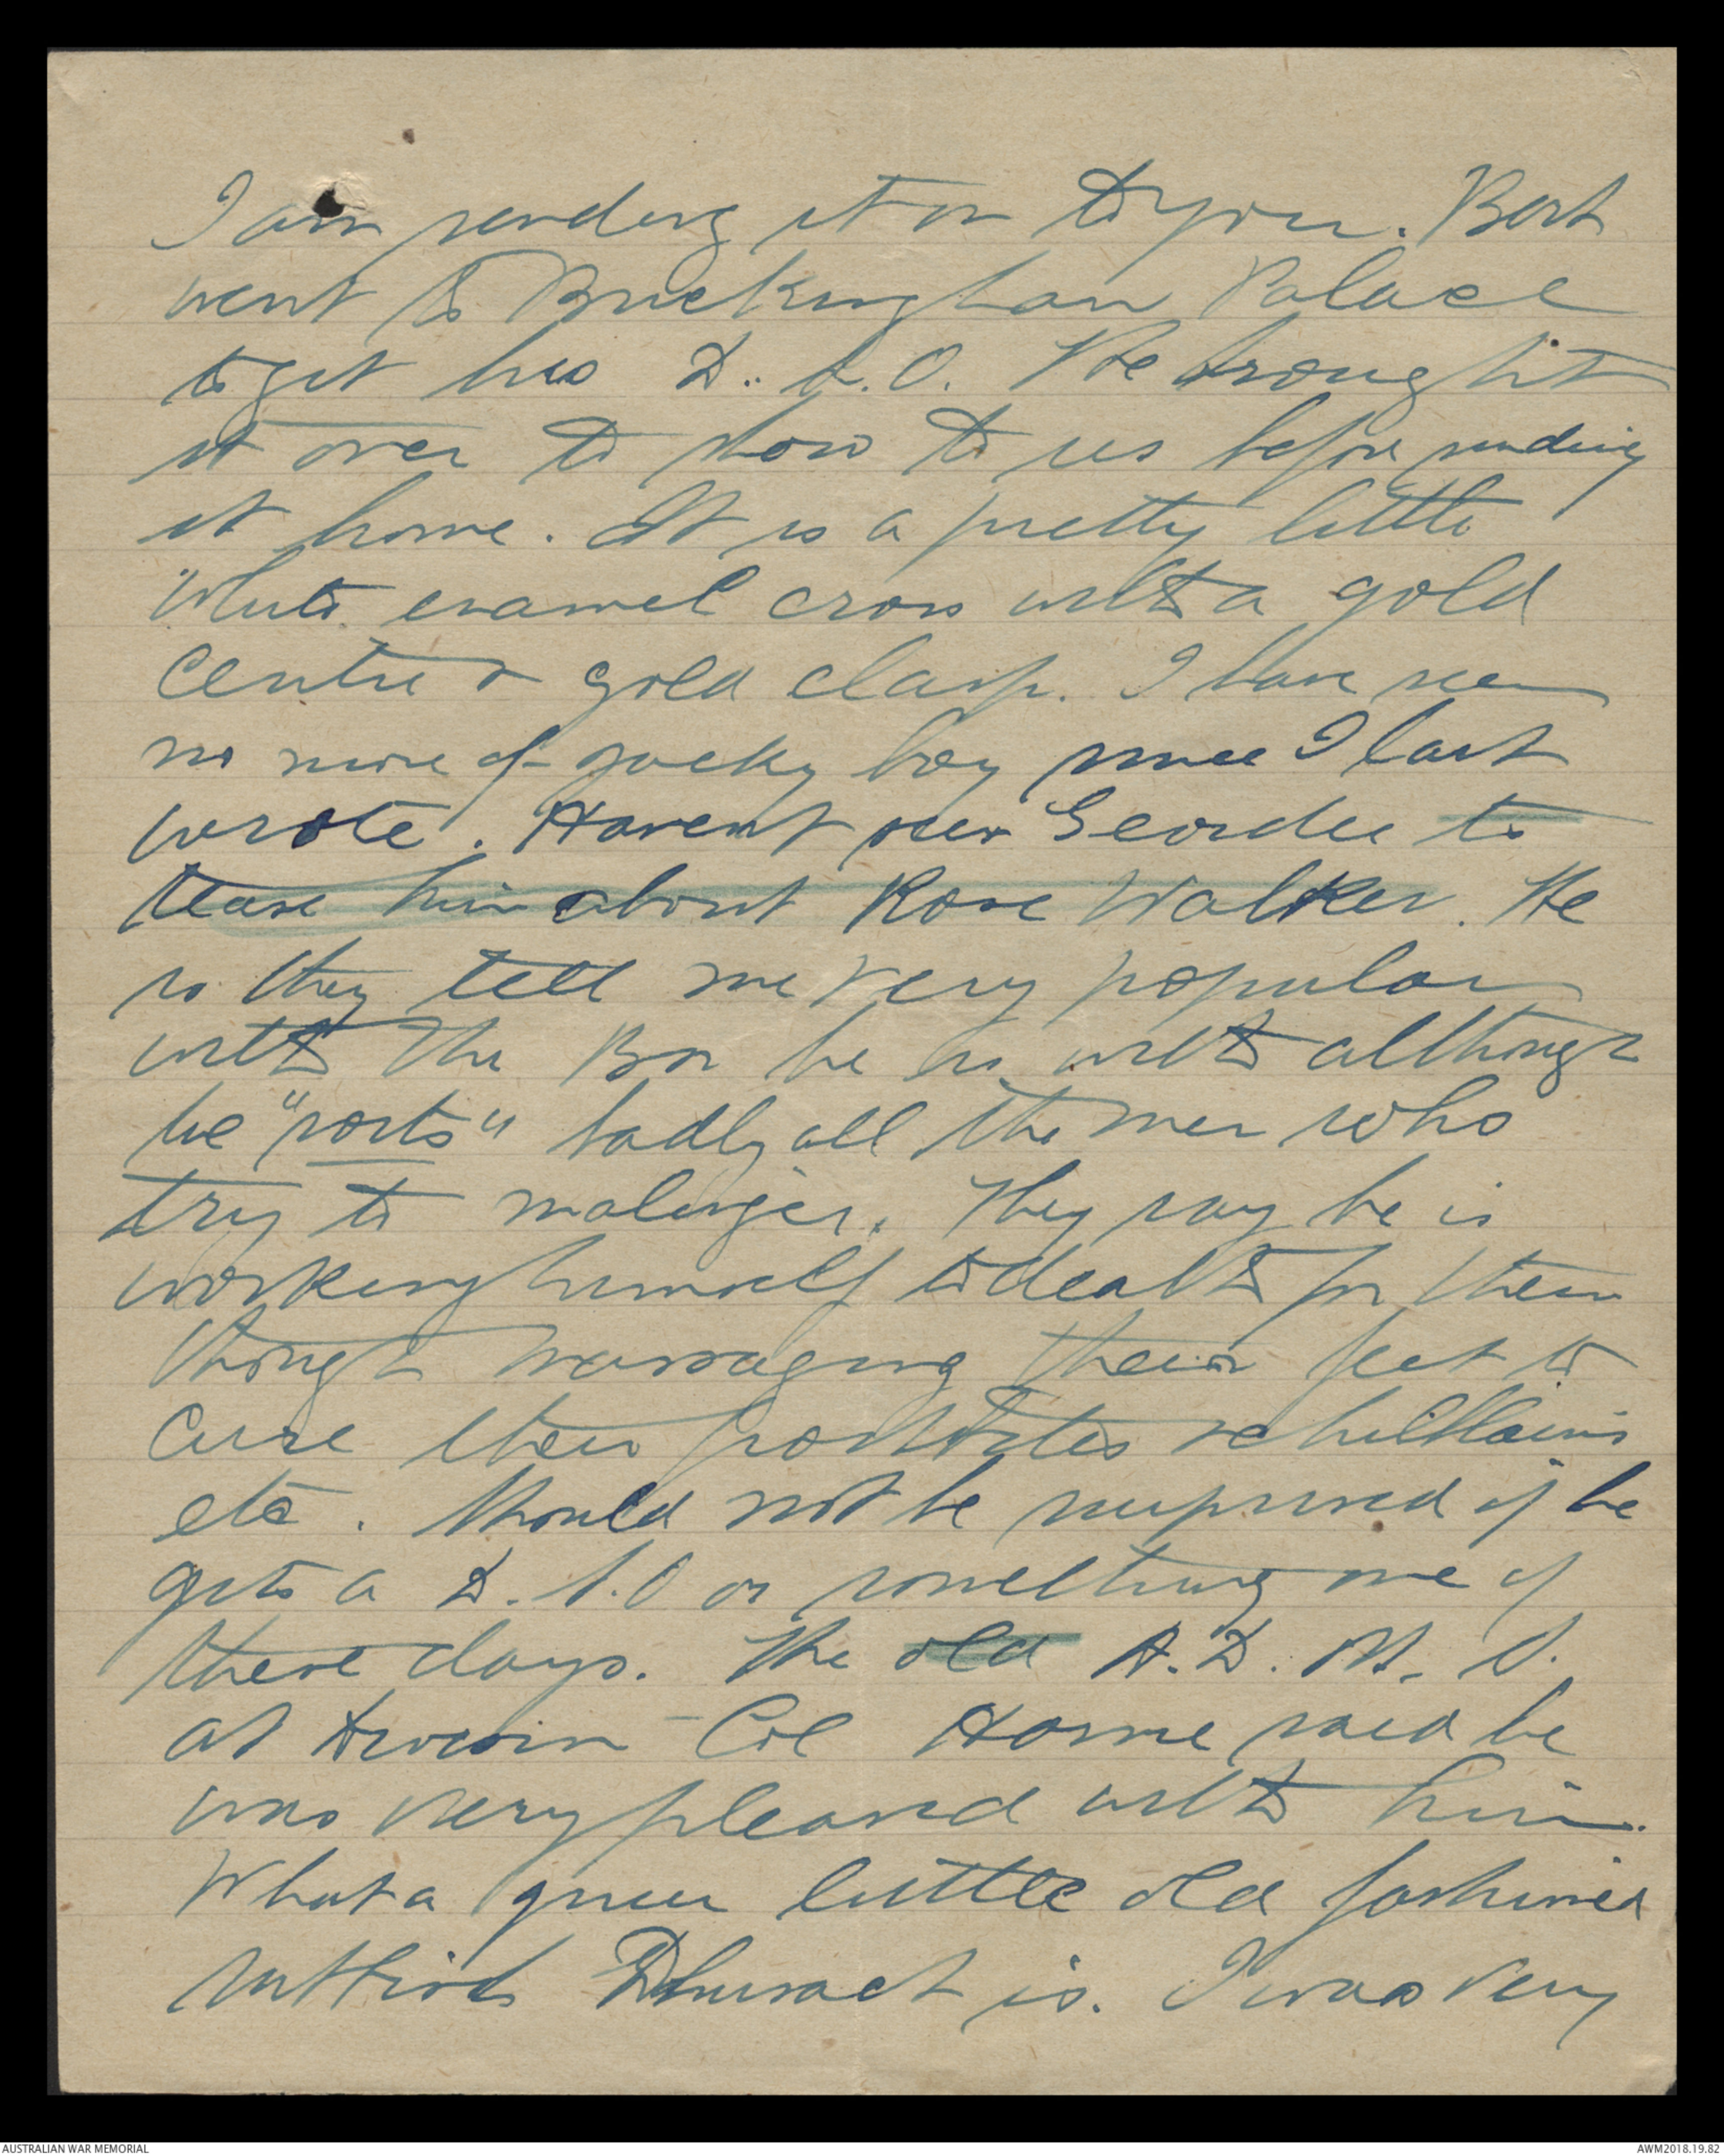 I am sending it on to you. Bert
went to Buckingham Palace
to get his D.S.O. He brought
it over to show to us before sending
it home. It is a pretty little
white enamel cross with a gold
centre & gold clasp. I have seen
no more of Jacky boy since I last
wrote. Havent seen Geordie to
tease him about Rose Walker. He
is they tell me very popular
with the Bn he is with although
he "roots" badly all the men who
try to malinger. They say he is
working himself to death for them
though massaging their feet to
cure their frostbites & chillblains
etc. Should not be surprised if he
gets a D.S.O or something one of
these days. The old A.D.M.S.
at Col Horne said he
was very pleased with him.
What a queer little old fashioned
is. I was very
AUSTRALIAN WAR MEMORIAL
AWM2018.19.82